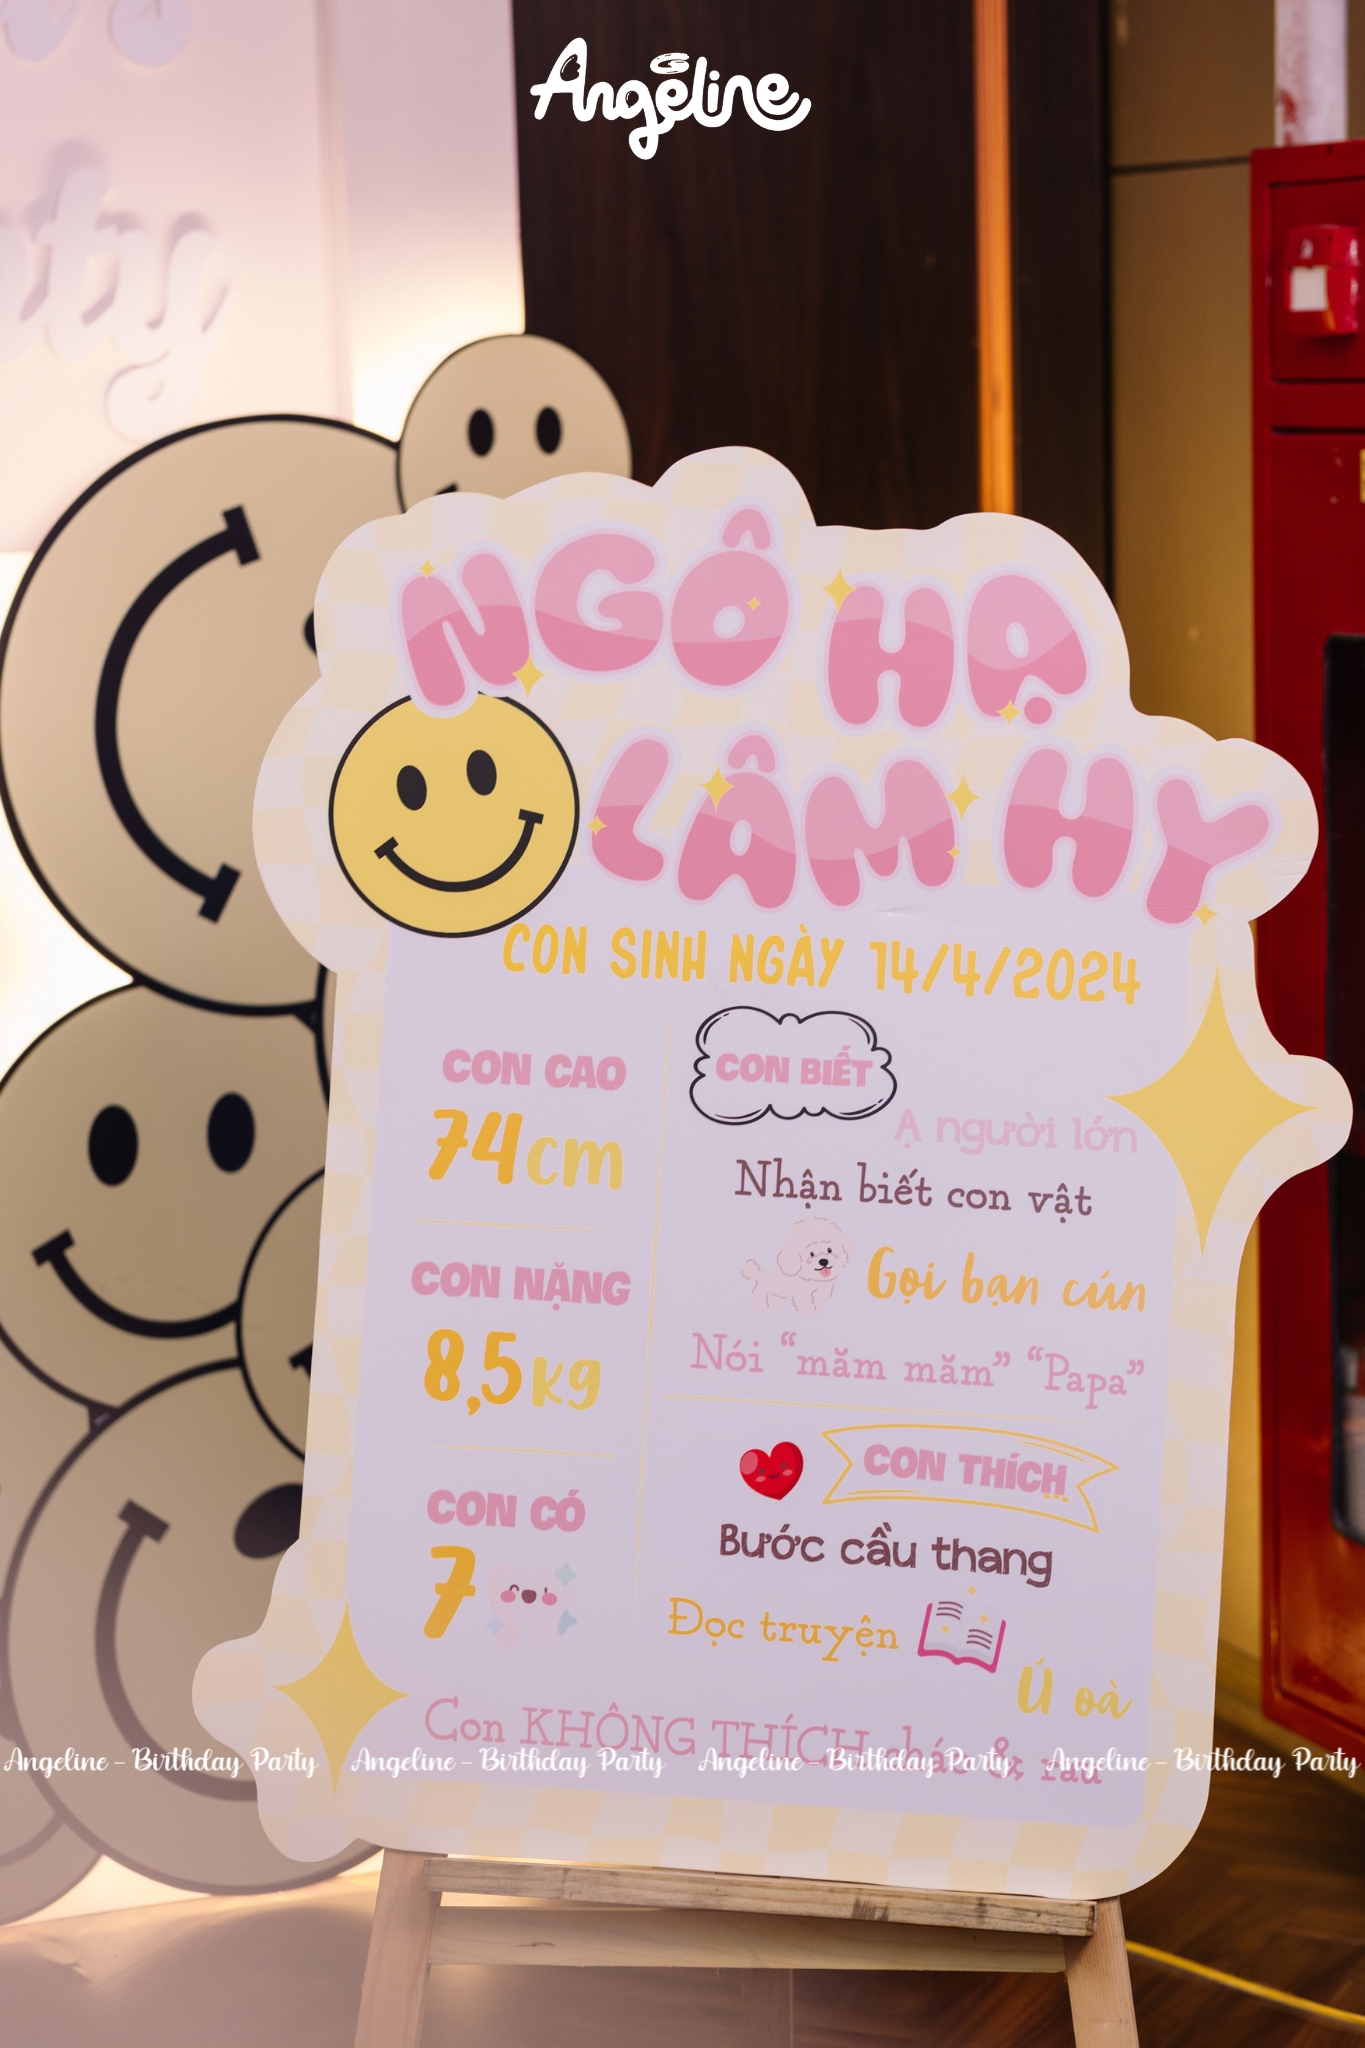 Angeline
ty
NGÔ HẠ
LÂM HY
CON SINH NGÀY 14/4/2024
CON CAO
74cm
CON NẶNG
8,5kg
CON CÓ
7
CON BIẾT
Ạ người lớn
Nhận biết con vật
Gọi bạn cún
Nói “măm măm” “Papa”
CON THÍCH...
Bước cầu thang
Đọc truyện
Ú oà
Con KHÔNG THÍCH cháo & rau
Angeline - Birthday Party Angeline - Birthday Party Angeline - Birthday Party Angeline - Birthday Party